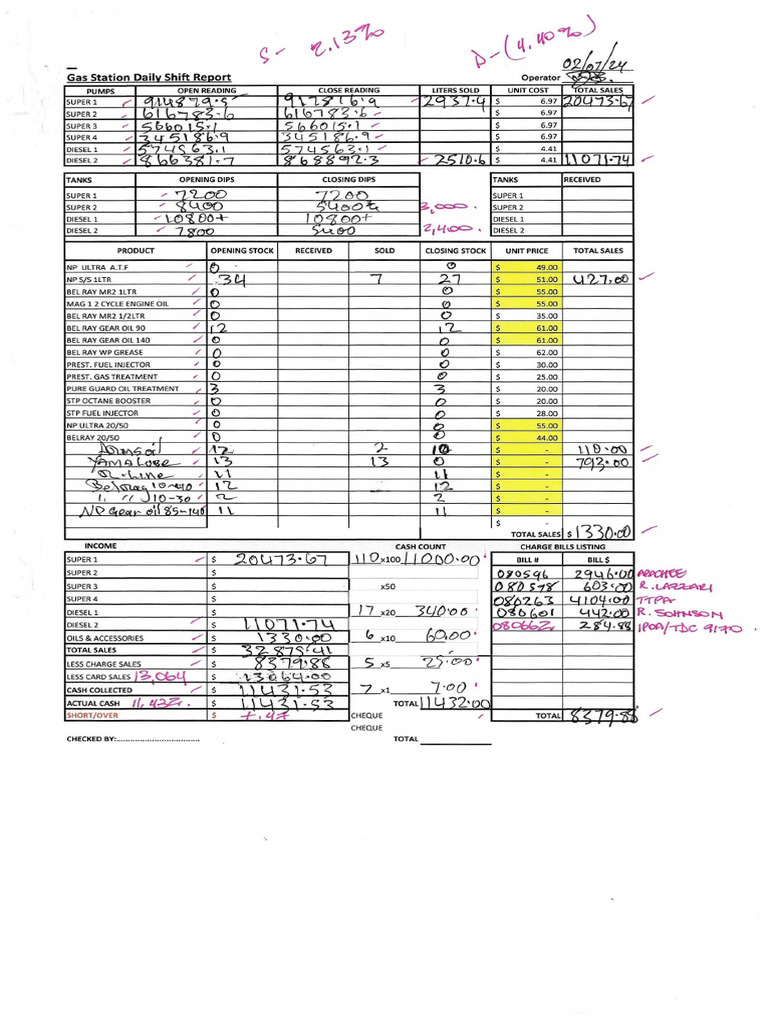 S- 2.13% D-(4.40%)
02/07/24
Gas Station Daily Shift Report Operator
PUMPS OPEN READING CLOSE READING LITERS SOLD UNIT COST TOTAL SALES
SUPER 1 914879.5 917816.9 2937.4 $ 6.97 20473.67
SUPER 2 616783.6 616783.6 $ 6.97
SUPER 3 566015.1 566015.1 $ 6.97
SUPER 4 345186.9 345186.9 $ 6.97
DIESEL 1 574563.1 574563.1 $ 4.41
DIESEL 2 866381.7 868892.3 2510.6 $ 4.41 11071.74
TANKS OPENING DIPS CLOSING DIPS TANKS RECEIVED
SUPER 1 7200 7200 SUPER 1
SUPER 2 8400 5400 3,000. SUPER 2
DIESEL 1 10800+ 10800+ DIESEL 1
DIESEL 2 7800 5400 2,400. DIESEL 2
PRODUCT OPENING STOCK RECEIVED SOLD CLOSING STOCK UNIT PRICE TOTAL SALES
NP ULTRA A.T.F 0 0 $ 49.00
NP S/S 1LTR 34 7 27 $ 51.00 427.00
BEL RAY MR2 1LTR 0 0 $ 55.00
MAG 1 2 CYCLE ENGINE OIL 0 0 $ 55.00
BEL RAY MR2 1/2LTR 0 0 $ 35.00
BEL RAY GEAR OIL 90 12 12 $ 61.00
BEL RAY GEAR OIL 140 0 0 $ 61.00
BEL RAY WP GREASE 0 0 $ 62.00
PREST. FUEL INJECTOR 0 0 $ 30.00
PREST. GAS TREATMENT 0 0 $ 25.00
PURE GUARD OIL TREATMENT 3 3 $ 20.00
STP OCTANE BOOSTER 0 0 $ 20.00
STP FUEL INJECTOR 0 0 $ 28.00
NP ULTRA 20/50 0 0 $ 55.00
BELRAY 20/50 0 0 $ 44.00
12 2 10 $ - 110.00
Yamalube 13 13 0 $ - 793.00
11 11 $ -
Belray 10-40 12 12 $ -
" " 10-30 2 2 $ -
NP Gear oil 85-140 11 11 $ -
$ -
TOTAL SALES $ 1330.00
INCOME CASH COUNT CHARGE BILLS LISTING
SUPER 1 $ 20473.67 110 x100 11000.00 BILL # BILL $
SUPER 2 $ 080596 2946.00
SUPER 3 $ x50 080578 603.00 R. LAZZARI
SUPER 4 $ 086263 4104.00 TTPA
DIESEL 1 $ 17 x20 340.00 080601 442.00 R. JOHNSON
DIESEL 2 $ 11071.74 080662 284.88 IPOA/TDC 9170
OILS & ACCESSORIES $ 1330.00 6 x10 60.00
TOTAL SALES $ 32875.41
LESS CHARGE SALES $ 8379.88 5 x5 25.00
LESS CARD SALES 13,064 $ 13064.00
CASH COLLECTED $ 11431.53 7 x1 7.00
ACTUAL CASH 11,432. $ 11431.53 TOTAL 11432.00
SHORT/OVER $ +.47 CHEQUE TOTAL 8379.88
CHEQUE
CHECKED BY:................................... TOTAL